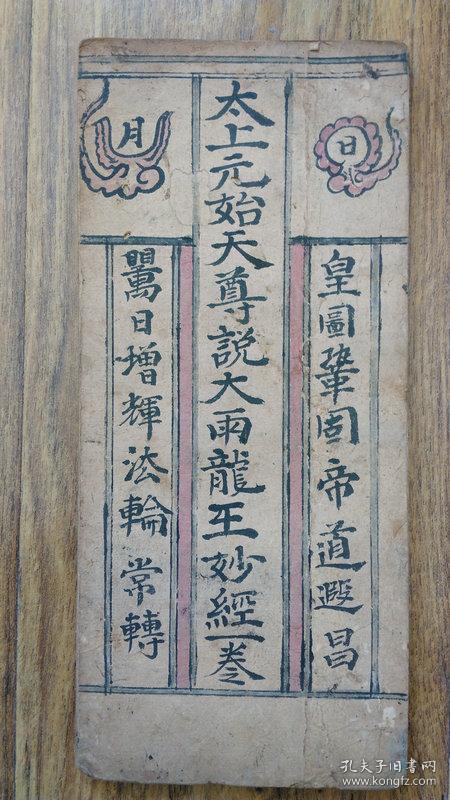 日
皇圖鞏固帝道遐昌
太上元始天尊説大雨龍王妙經一卷
月
日增輝法輪常轉
孔夫子旧书网
www.kongfz.com